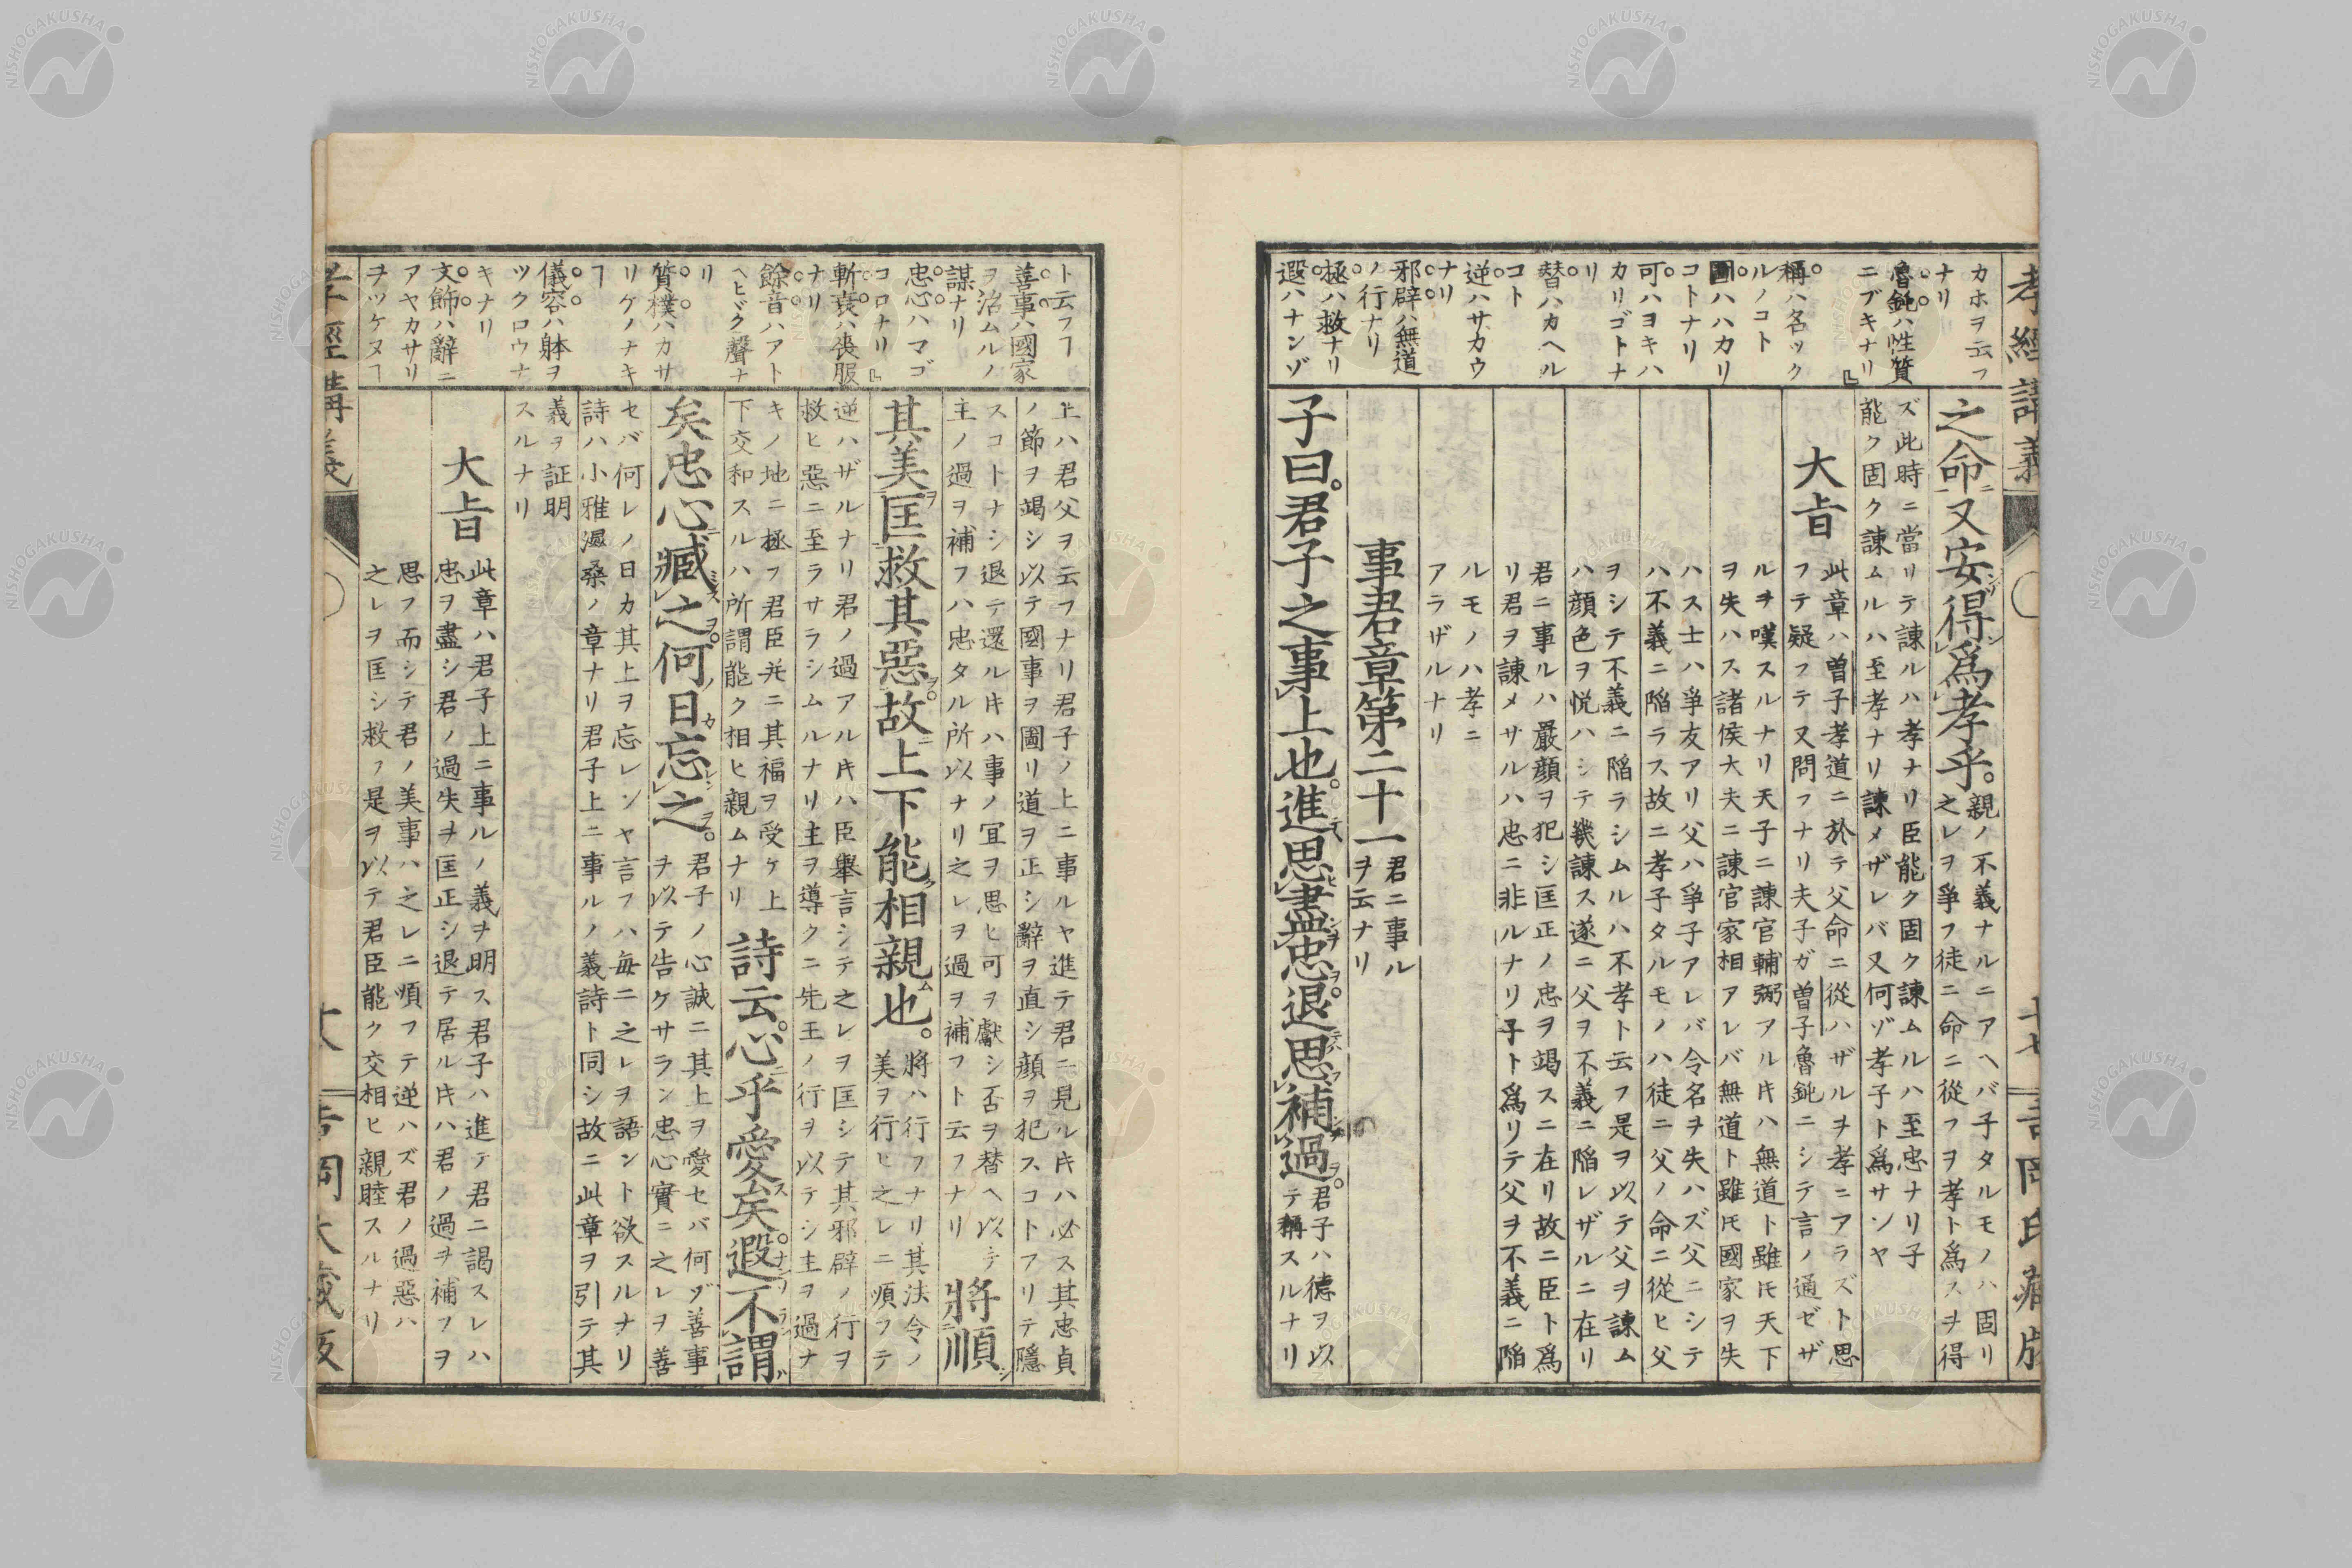 孝經講義
カホヲ云フ
ナリ
魯鈍ハ性質
ニブキナリ
稱ハ名ック
ルノコト
圖ハハカリ
コトナリ
可ハヨキハ
カリゴトナ
リ
替ハカヘル
コト
逆ハサカウ
ナリ
邪辟ハ無道
ノ行ナリ
極ハ救ナリ
遐ハナンゾ
之命又安得爲孝乎。
親ノ不義ナルニアヘバ子タルモノハ固リ
之レヲ爭フ徒ニ命ニ從フヲ孝ト爲スヲ得
ズ此時ニ當リテ諫ルハ孝ナリ臣能ク固ク諫ムルハ至忠ナリ子
能ク固ク諫ムルハ至孝ナリ諫メザレバ又何ゾ孝子ト爲サンヤ
大旨
此章ハ曽子孝道ニ於テ父命ニ從ハザルヲ孝ニアラズト思
フテ疑フテ又問フナリ夫子ガ曽子魯鈍ニシテ言ノ通ゼザ
ルヲ嘆スルナリ天子ニ諫官輔弼アル片ハ無道ト雖𪜈天下
ヲ失ハス諸侯大夫ニ諫官家相アレバ無道ト雖𪜈國家ヲ失
ハス士ハ爭友アリ父ハ爭子アレバ令名ヲ失ハズ父ニシテ
ハ不義ニ陥ラス故ニ孝子タルモノハ徒ニ父ノ命ニ從ヒ父
ヲシテ不義ニ陥ラシムルハ不孝ト云フ是ヲ以テ父ヲ諫ム
ハ顔色ヲ悦ハシテ幾諫ス遂ニ父ヲ不義ニ陥レザルニ在リ
君ニ事ルハ嚴顔ヲ犯シ匡正ノ忠ヲ竭スニ在リ故ニ臣ト爲
リ君ヲ諫メサルハ忠ニ非ルナリ子ト爲リテ父ヲ不義ニ陥
ルモノハ孝ニ
アラザルナリ
事君章第二十一
君ニ事ル
ヲ云ナリ
子曰。君子之事上也。進思盡忠。退思補過。
君子ハ德ヲ以
テ稱スルナリ
ト云フヿ
善事ハ國家
ヲ治ムルノ
謀ナリ
忠心ハマゴ
コロナリ
斬衰ハ喪服
ナリ
餘音ハアト
ヘヒゞク聲ナ
リ
質樸ハカサ
リケノナキ
ヿ
儀容ハ躰ヲ
ツクロウナ
キナリ
文飾ハ辭ニ
アヤカサリ
ヲツケヌヿ
上ハ君父ヲ云フナリ君子ノ上ニ事ルヤ進テ君ニ見ル片ハ必ス其忠貞
ノ節ヲ竭シ以テ國事ヲ圖リ道ヲ正シ辭ヲ直シ顔ヲ犯スコトアリテ隱
スコトナシ退テ還ル片ハ事ノ宜ヲ思ヒ可ヲ獻シ否ヲ替ヘ以テ
主ノ過ヲ補フハ忠タル所以ナリ之レヲ過ヲ補フト云フナリ
將順
其美匡救其惡。故上下能相親也。
將ハ行フナリ其法令ノ
美ヲ行ヒ之レニ順フテ
逆ハザルナリ君ノ過アル片ハ臣舉言シテ之レヲ匡シテ其邪辟ノ行ヲ
救ヒ惡ニ至ラサラシムルナリ主ヲ導クニ先王ノ行ヲ以テシ主ヲ過ナ
キノ地ニ極フ君臣并ニ其福ヲ受ケ上
下交和スルハ所謂能ク相ヒ親ムナリ
詩云。心乎愛矣。遐不謂
矣忠心臧之。何日忘之。
君子ノ心誠ニ其上ヲ愛セバ何ゾ善事
ヲ以テ告ケサラン忠心實ニ之レヲ善
セバ何レノ日カ其上ヲ忘レンヤ言フハ毎ニ之レヲ語ント欲スルナリ
詩ハ小雅濕桑ノ章ナリ君子上ニ事ルノ義詩ト同シ故ニ此章ヲ引テ其
義ヲ証明
スルナリ
大旨
此章ハ君子上ニ事ルノ義ヲ明ス君子ハ進テ君ニ謁スレハ
忠ヲ盡シ君ノ過失ヲ匡正シ退テ居ル片ハ君ノ過ヲ補フヲ
思フ而シテ君ノ美事ハ之レニ順フテ逆ハズ君ノ過惡ハ
之レヲ匡シ救フ是ヲ以テ君臣能ク交相ヒ親睦スルナリ
NISHOGAKUSHA